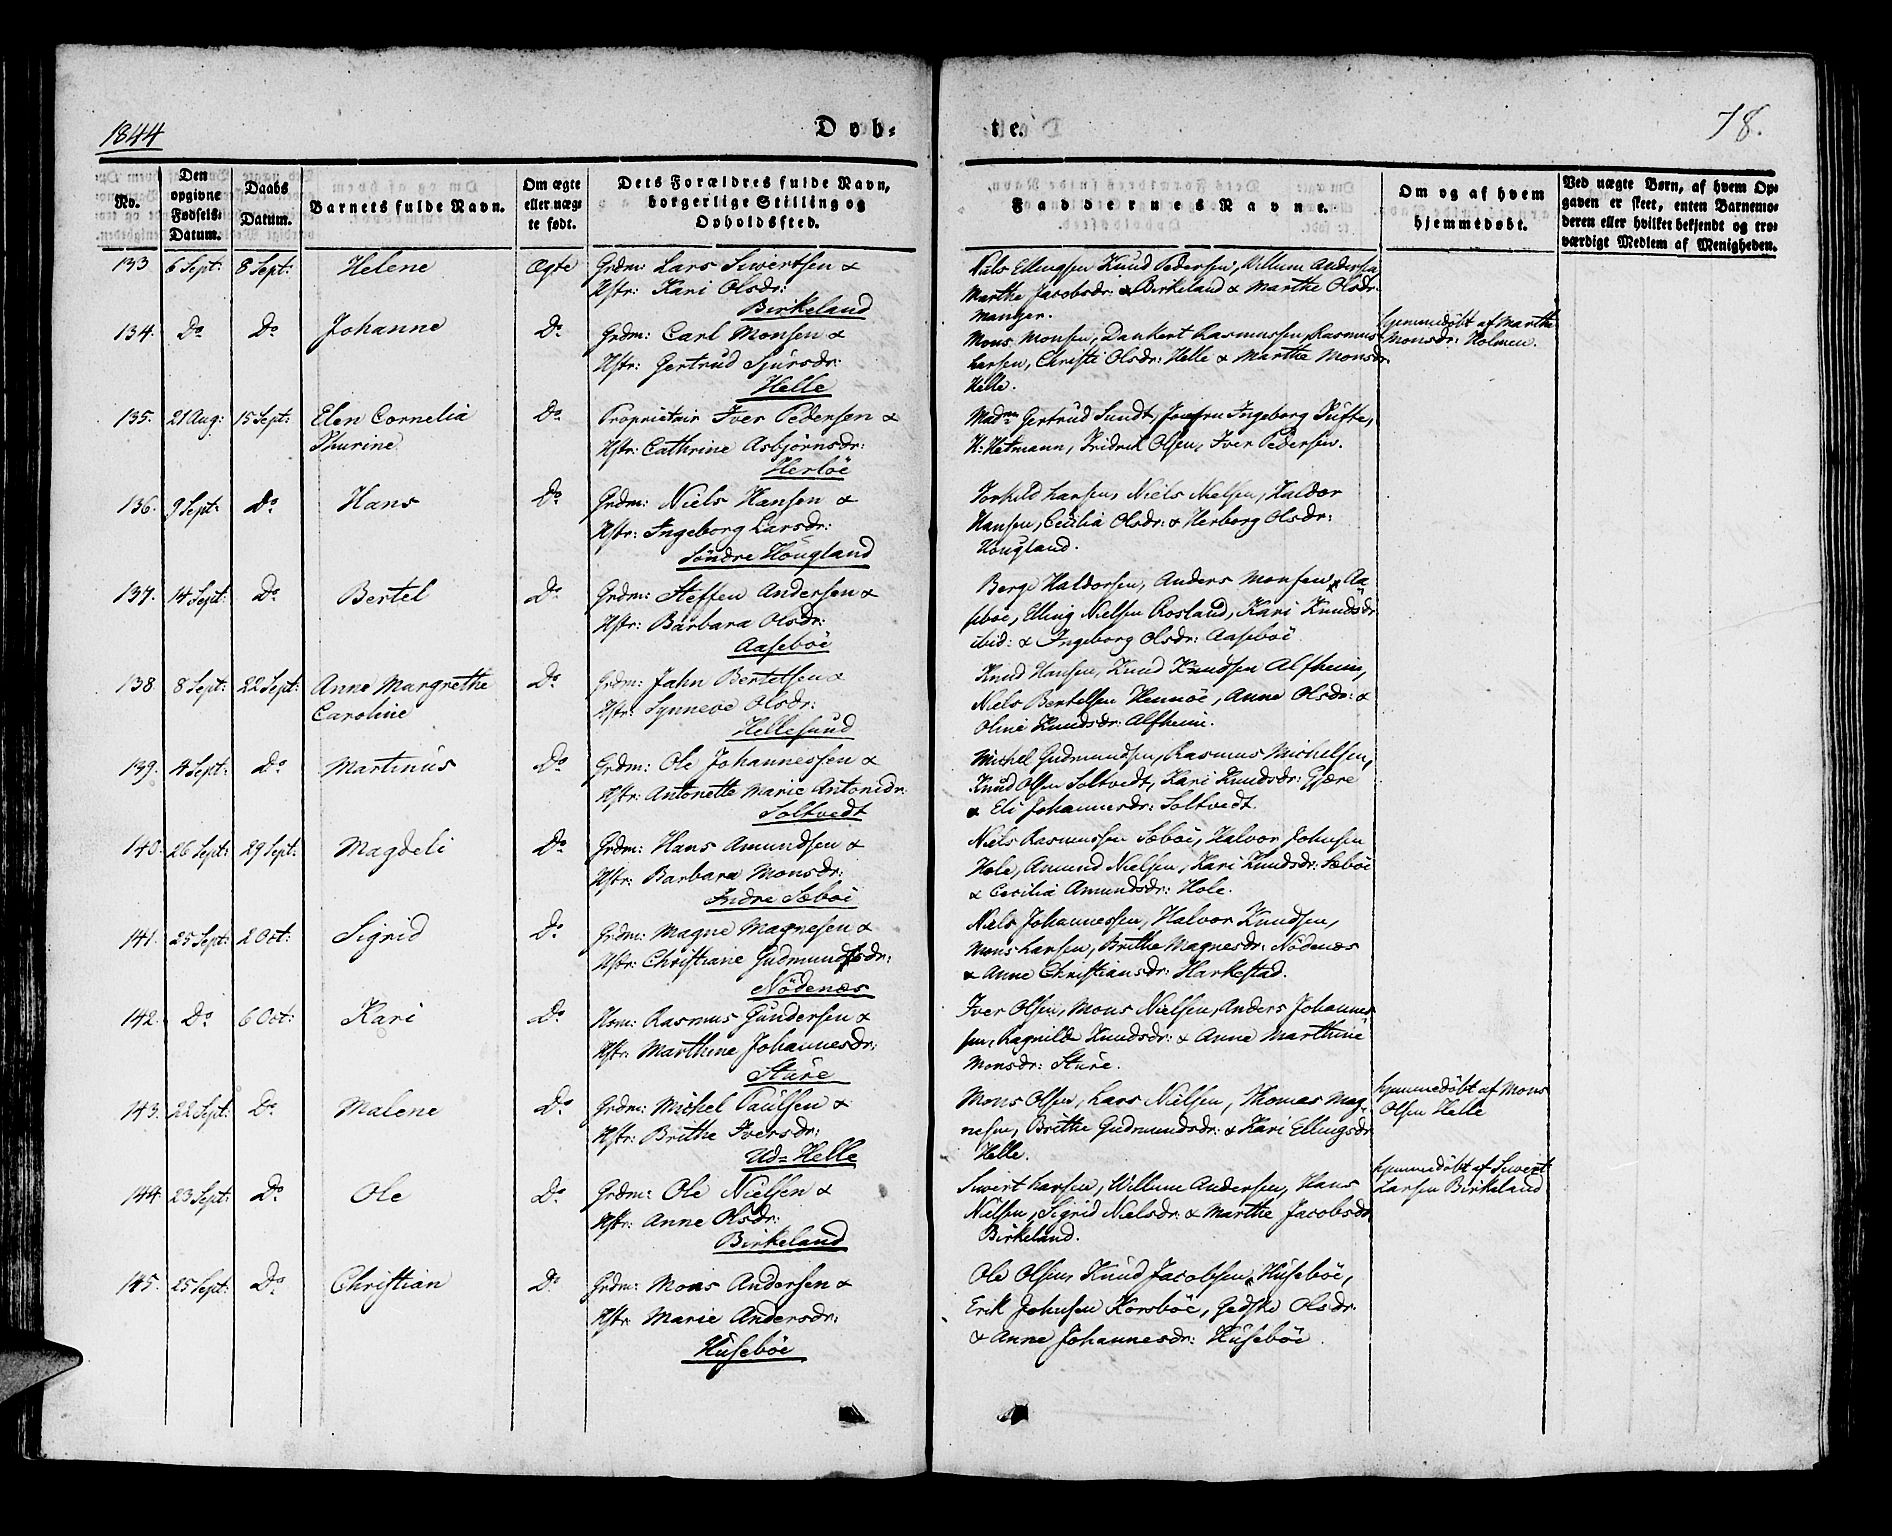 1844
Døb-
te.
78.
No.
Den opgivne Fødsels-Datum.
Daabs Datum.
Barnets fulde Navn.
Om ægte eller uægte født.
Dets Forældres fulde Navn, borgerlige Stilling og Opholdssted.
Faddernes Navne.
Om og af hvem hjemmedøbt.
Ved uægte Børn, af hvem Opgaven er skeet, enten Barnemoderen eller hvilket bekjendt og troværdigt Medlem af Menigheden.
133 6 Sept: 8 Sept: Helene Ægte Grdm: Lars Siwertsen &
Hstr: Kari Olsdr:
Birkeland
Niels Ellingsen Knud Pedersen, Willum Andersen
Marthe Jacobsdr: & Birkeland & Marthe Olsdr:
Manger.
134. Do Do Johanne Do Grdm: Carl Monsen &
Hstr: Gertrud Sjursdr:
Helle
Mons Monsen, Dankert Rasmussen, Rasmus
Larsen, Christi Olsdr: Helle & Marthe Monsdr
Helle.
hjemmedöbt af Marthe
Monsdr: Holmen.
135. 21 Aug: 15 Sept: Elen Cornelia
Thurine
Do Proprietair Iver Pedersen &
Hstr: Cathrine Asbjørnsdr:
Herlöe
Madm Gertrud Sundt, Jomfru Ingeborg Tufte,
H: Heitmann, Fridrik Olsen, Iver Pedersen.
136. 9 Sept: Do Hans Do Grdm: Niels Hansen &
Hstr: Ingeborg Larsdr:
Söndre Hougland
Torkild Larsen, Niels Nielsen, Haldor
Hansen, Cecilia Olsdr: & Herborg Olsdr:
Hougland.
137. 14 Sept: Do Bertel Do Grdm: Steffen Andersen &
Hstr: Barbara Olsdr:
Aaseböe
Berge Haldorsen, Anders Monsen, Aa-
seböe, Elling Nielsen Rosland, Kari Knudsdr
ibid: & Ingeborg Olsdr: Aaseböe
138 8 Sept: 22 Sept: Anne Margrethe
Caroline
Do Grdm: Jahn Bertelsen &
Hstr: Synneve Olsdr:
Hellesund
Knud Hansen, Knud Knudsen Alfheim,
Niels Bertelsen Hennöe, Anne Olsdr: &
Oline Knudsdr: Alfheim.
139. 4 Sept: Do Martinus Do Grdm: Ole Johannessen &
Hstr: Antonette Marie Antonidr:
Soltvedt
Michel Gudmundsen, Rasmus Michelsen,
Knud Olsen Soltvedt, Kari Knudsdr: Gjære
& Eli Johannesdr: Soltvedt.
140. 26 Sept: 29 Sept: Magdeli Do Grdm: Hans Amundsen &
Hstr: Barbara Monsdr:
Indre Sæböe
Niels Rasmussen Sæböe, Halvor Johnsen
Hole, Amund Nielsen, Kari Knudsdr: Sæböe
& Cecilia Amundsdr: Hole.
141. 25 Sept: 2 Oct: Sigrid Do Grdm: Magne Magnesen &
Hstr: Christiane Gudmundsdr:
Nödenæs
Niels Johannessen, Halvor Knudsen,
Mons Larsen, Brithe Magnesdr: Nödenæs
& Anne Christiansdr: Harkestad.
142. Do 6 Oct: Kari Do Hsm: Rasmus Gundersen &
Hstr: Marthine Johannesdr:
Sture
Iver Olsen, Mons Nielsen, Anders Johannes-
sen, Ragnilde Knudsdr: & Anne Marthine
Monsdr: Sture.
143. 22 Sept: Do Malene Do Grdm: Michel Paulsen &
Hstr: Brithe Iversdr:
Ud-Helle
Mons Olsen, Lars Nielsen, Thomas Mag-
nesen, Brithe Gudmundsdr: & Kari Ellingsdr
Helle.
hjemmedöbt af Mons
Olsen Helle
144. 23 Sept: Do Ole Do Grdm: Ole Nielsen &
Hstr: Anne Olsdr:
Birkeland
Siwert Larsen, Willum Andersen, Hans
Nilsen, Sigrid Nielsdr: & Marthe Jacobsdr
Birkeland.
hjemmedöbt af Siwert
Larsen Birkeland
145. 25 Sept: Do Christian Do Grdm: Mons Andersen &
Hstr: Marie Andersdr:
Huseböe
Ole Olsen, Knud Jacobsen, Huseböe,
Erik Johnsen Korsböe, Gedske Olsdr:
& Anne Johannesdr: Huseböe.